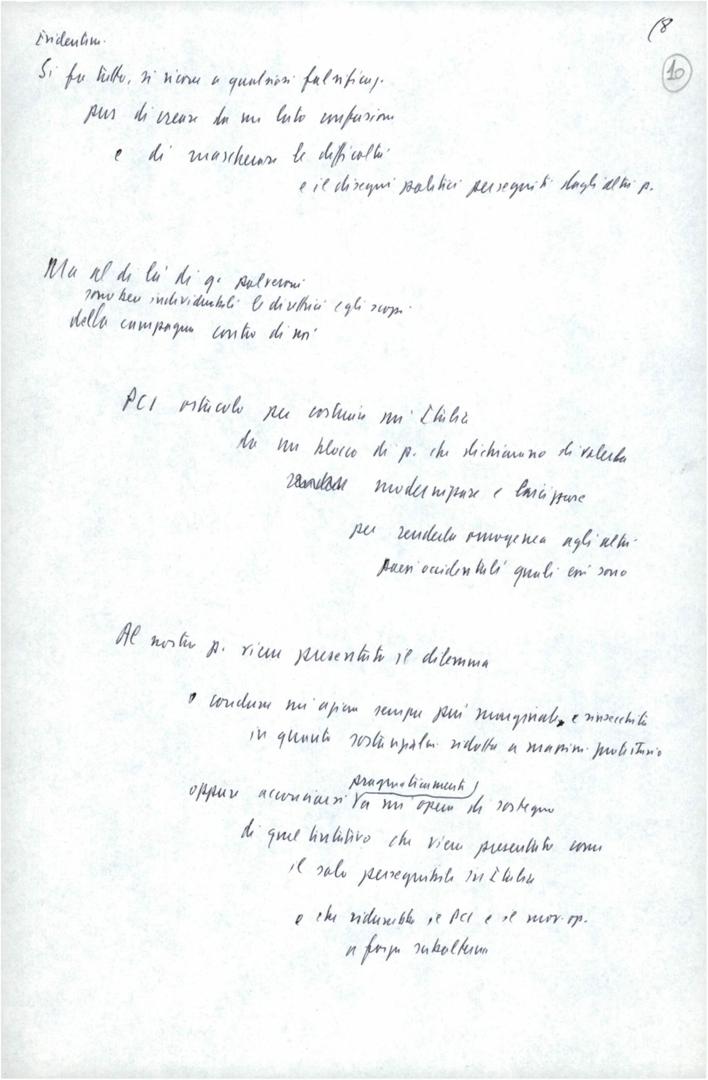 18
10
Evidentem.
Si fa tutto, si ricorre a qualsiasi falsificaz.
pur di creare da un lato confusione
e di mascherare le difficoltà
e il disegni politici perseguiti dagli altri p.
Ma al di là di q. polveroni
sono ben individuabili le direttrici e gli scopi
della campagna contro di noi
PCI ostacolo per costruire un'Italia
da un blocco di p. che dichiarano di volerla
modernizzare e laicizzare
per renderla omogenea agli altri
paesi occidentali quali essi sono
Al nostro p. viene presentato il dilemma
o condurre un'azione sempre più marginale, e rinsecchita
in quanto sostanzialm. ridotta a protestario
oppure acconciarsi pragmaticamente a un'opera di sostegno
di quel tentativo che viene presentato come
il solo perseguibile in Italia
e che ridurrebbe il PCI e il mov. op.
a forza subalterna